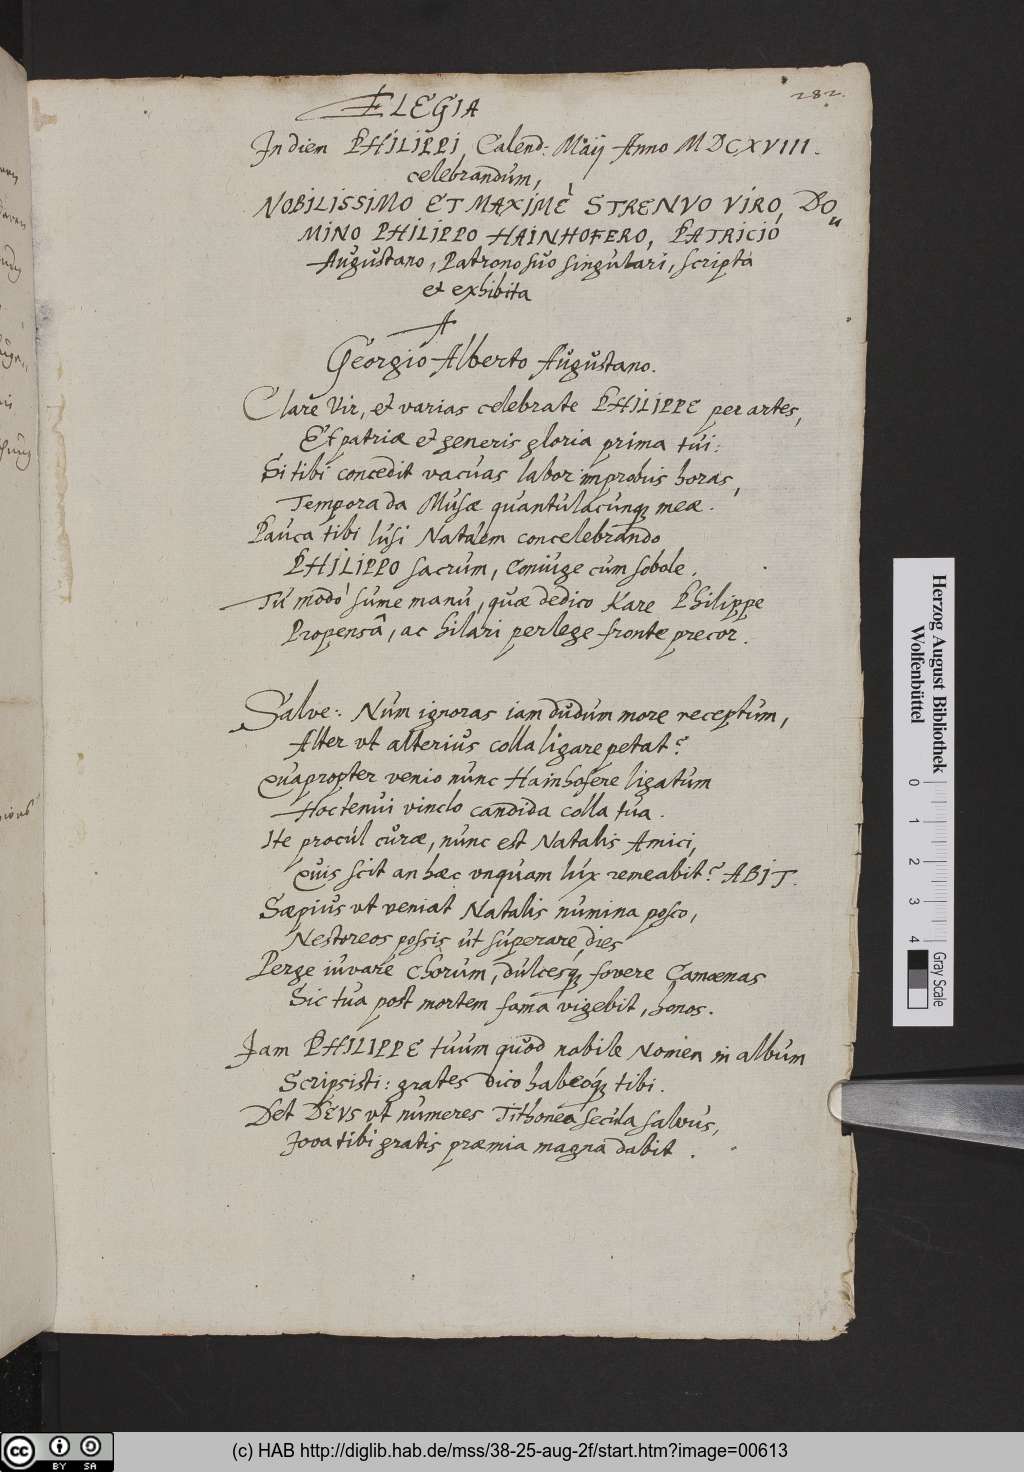 282.
ELEGIA
In diem PHILIPPI, Calend: Maij Anno MDCXVIII.
celebrandum,
NOBILISSIMO ET MAXIMÈ STRENVO VIRO, DO„
MINO PHILIPPO HAINHOFERO, PATRICIO
Augustano, Patrono suo singulari, scripta
et exhibita
A
Georgio Alberto Augustano.
Clare Vir, et varias celebrate PHILIPPE per artes,
Et patriæ et generis gloria prima tui:
Si tibi concedit vacuas labor improbus horas,
Tempora da Musæ quantulacunq; meæ.
Pauca tibi lusi Natalem concelebrando
PHILIPPO sacrum, Coniuge cum sobole.
Tu modò sume manu, quæ dedico Kare Philippe
Propensâ, ac hilari perlege fronte precor.
Salve: Num ignoras iam dudum more receptum,
Alter vt alterius colla ligare petat?
Quapropter venio nunc Hainhofere ligatum
Hoc tenui vinclo candida colla tua.
Ite procul curæ, nunc est Natalis Amici,
Quis scit an hæc vnquam lux remeabit? ABIT.
Sæpius vt veniat Natalis numina posco,
Nestoreos possis ut superare dies
Perge iuvare Chorum, dulcesq; fovere Camœnas
Sic tua post mortem fama vigebit, honos.
Jam PHILIPPE tuum quod nobile Nomen in album
Scripsisti: grates dico habeóq; tibi.
Det DEVS vt numeres Tithonea secula salvus,
Jova tibi gratis præmia magna dabit.
Herzog August Bibliothek
Wolfenbüttel
0 1 2 3 4
Gray Scale
cc BY SA
(c) HAB http://diglib.hab.de/mss/38-25-aug-2f/start.htm?image=00613